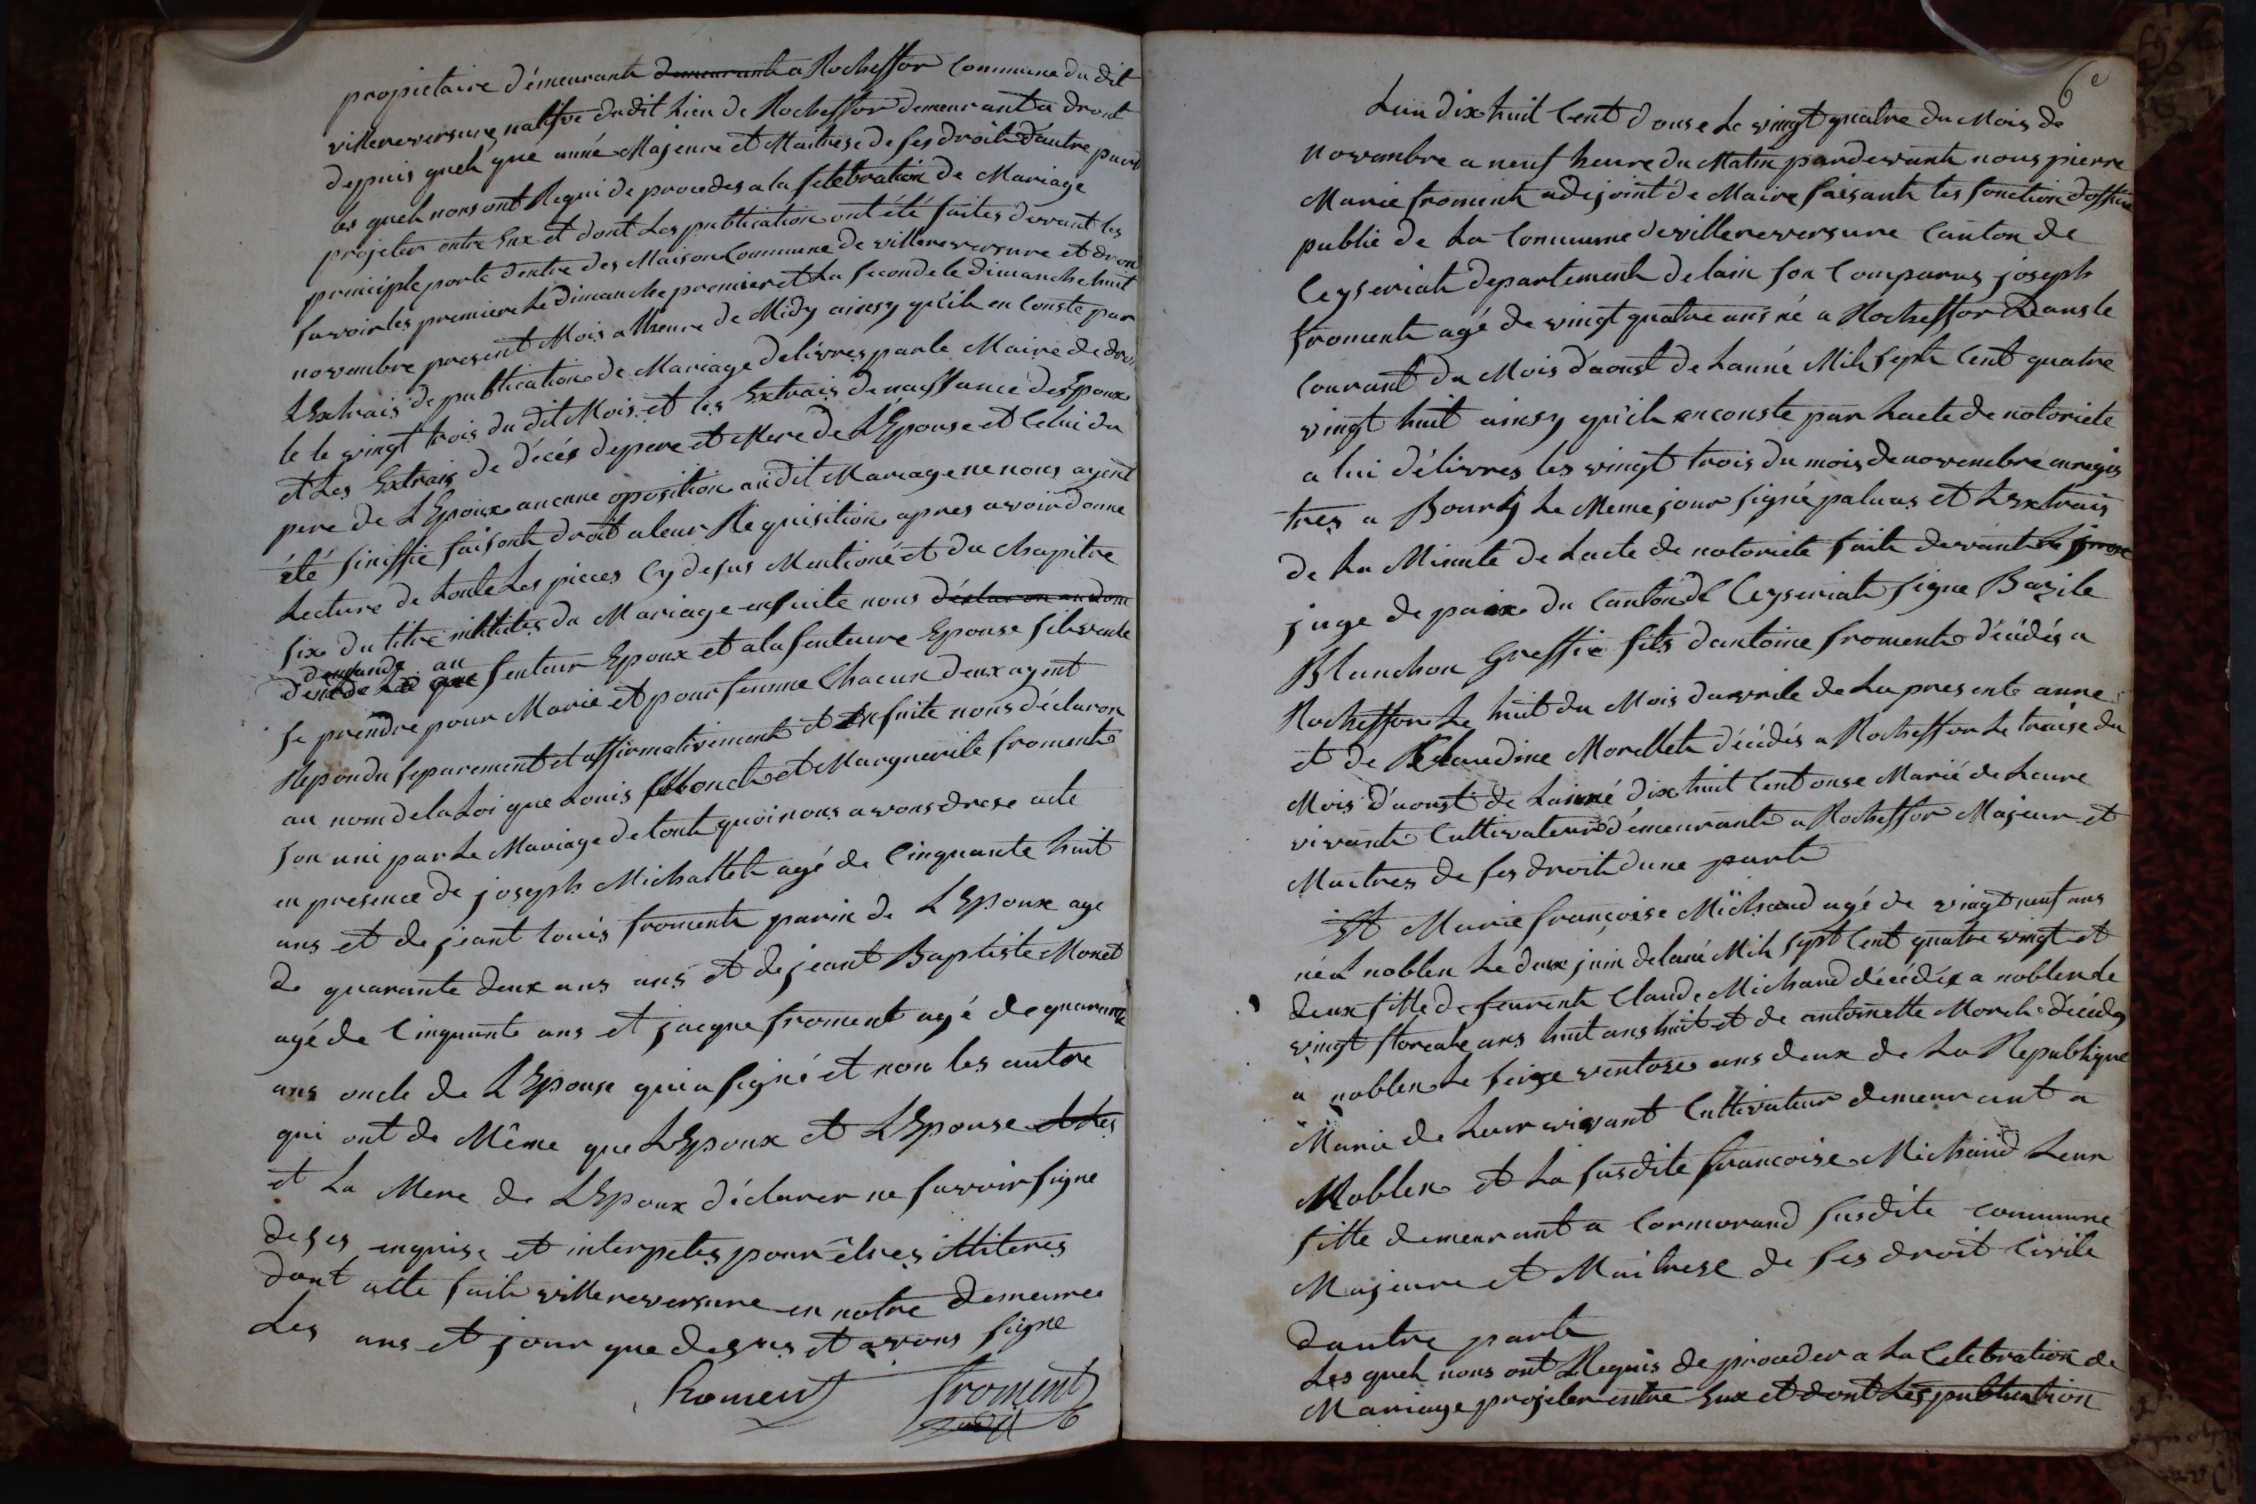 propietaire démeurant demeurant a Rocheffor Commune du dit
villereversure natifve dudit lieu de Rocheffor demeurant a dront
depuis quelque anné Majeure et Maitrese de ses droit dautre part
les quels nous ont Requi de proceder a la selebration de Mariage
projeter entre Eux et dont Les publication ont été faites devant les
principle porte dentre des Maison Commune de villereversure et dron
savoir les premiere Le dimanche premier et La seconde le dimanche huit
novembre present Mois a lheure de Midy ainsy qu'ils en Conste par
LExtrais de publication de Mariage delivres par le Maire de dron
le le vingt trois du dit Mois et les Extrais de naissance des Epoux
et Les Extrais de décés de pere et Mere de LEpouse et Celui du
pere de LEpoux aucune oposition audit Mariage ne nous ayent
été siniffie faisont droit a leur Requisition apres avoir donne
Lecture de toute Les pieces Cy desus Mentioné et du chapitre
six du titre intitules du Mariage ensuite nous déclaron au nom
demande au
de La que fenteur Epoux et a la fenteure Epouse sils veule
se prendre pour Marie et pour femme Chacun deux ayent
Repondu separement et affirmativement et Ensuite nous déclaron
au nom de la Loi que Louis et Marguerite froment
son uni par Le Mariage de tout quoi nous avons drese acte
en presence de joseph Michallet agé de Cinquante huit
ans et de jeant louis froment parin de LEpoux age
de quarante deux ans ans et de jeant Baptiste Monet
agé de Cinquante ans et jacque froment agé de quarante
ans oncle de LEpouse qui a signé et non les autre
qui ont de Même que LEpoux et LEpouse et Les
et La Mere de LEpoux déclarer ne savoir signe
de ses enquise et interpeles pour êtres illiteres
dont atte fait villereversure en notre demeure
Les ans et jour que desus et avons signe
froment froment
6e
Lan dix huit Cent douse Le vingt quatre du Mois de
novembre a neuf heure du Matin pardevant nous pierre
Marie froment adejoint de Maire faisant les fonction dofficie
publie de La Commune de villereversure Canton de
Ceyseriat departement de lain son Comparus joseph
froment agé de vingt quatre ans né a Rocheffor Dans le
Courant du Mois d'aoust de Lanné Mil sept Cent quatre
vingt huit ainsy qu'ils en conste par Lacte de notoriete
a lui délivres les vingt trois du mois de novembre enregis
tres a Bourg Le Meme jour signé paluas et LExtrais
de La Minute de Lacte de notoriete fait devant
juge de paix du Canton de Ceyseriat signe Bazile
Blanchon Greffie fils dantoine froment décédés a
Rocheffor Le huit du Mois davrile de La presente anne
et de Claudine Morellet décédés a Rocheffor Le traise du
Mois d'aoust de Lanné dix huit Cent onse Marié de Leure
vivant Cultivateur démeurant a Rocheffor Majeur et
Maitres de ses droit dune part
Et Marie françoise Michaud agé de vingt neuf ans
né a noblen Le deux juin de lané Mil sept Cent quatre vingt et
deux fille de feurent Claude Michaud décédés a noblen le
vingt floreale ans huit ans huit et de antoinette Morel décédes
a noblen Le seize ventose ans deux de La Republique
Marie de Leur vivant Cultivateur demeurant a
Noblen et La susdite francoise Michaud Leur
fille demeurant a Cormorand susdite commune
Majeure et Maitrese de ses droit Civile
dautre part
Les quels nous ont Requis de proceder a La Celebration de
Mariage projeter entre Eux et dont Les publication